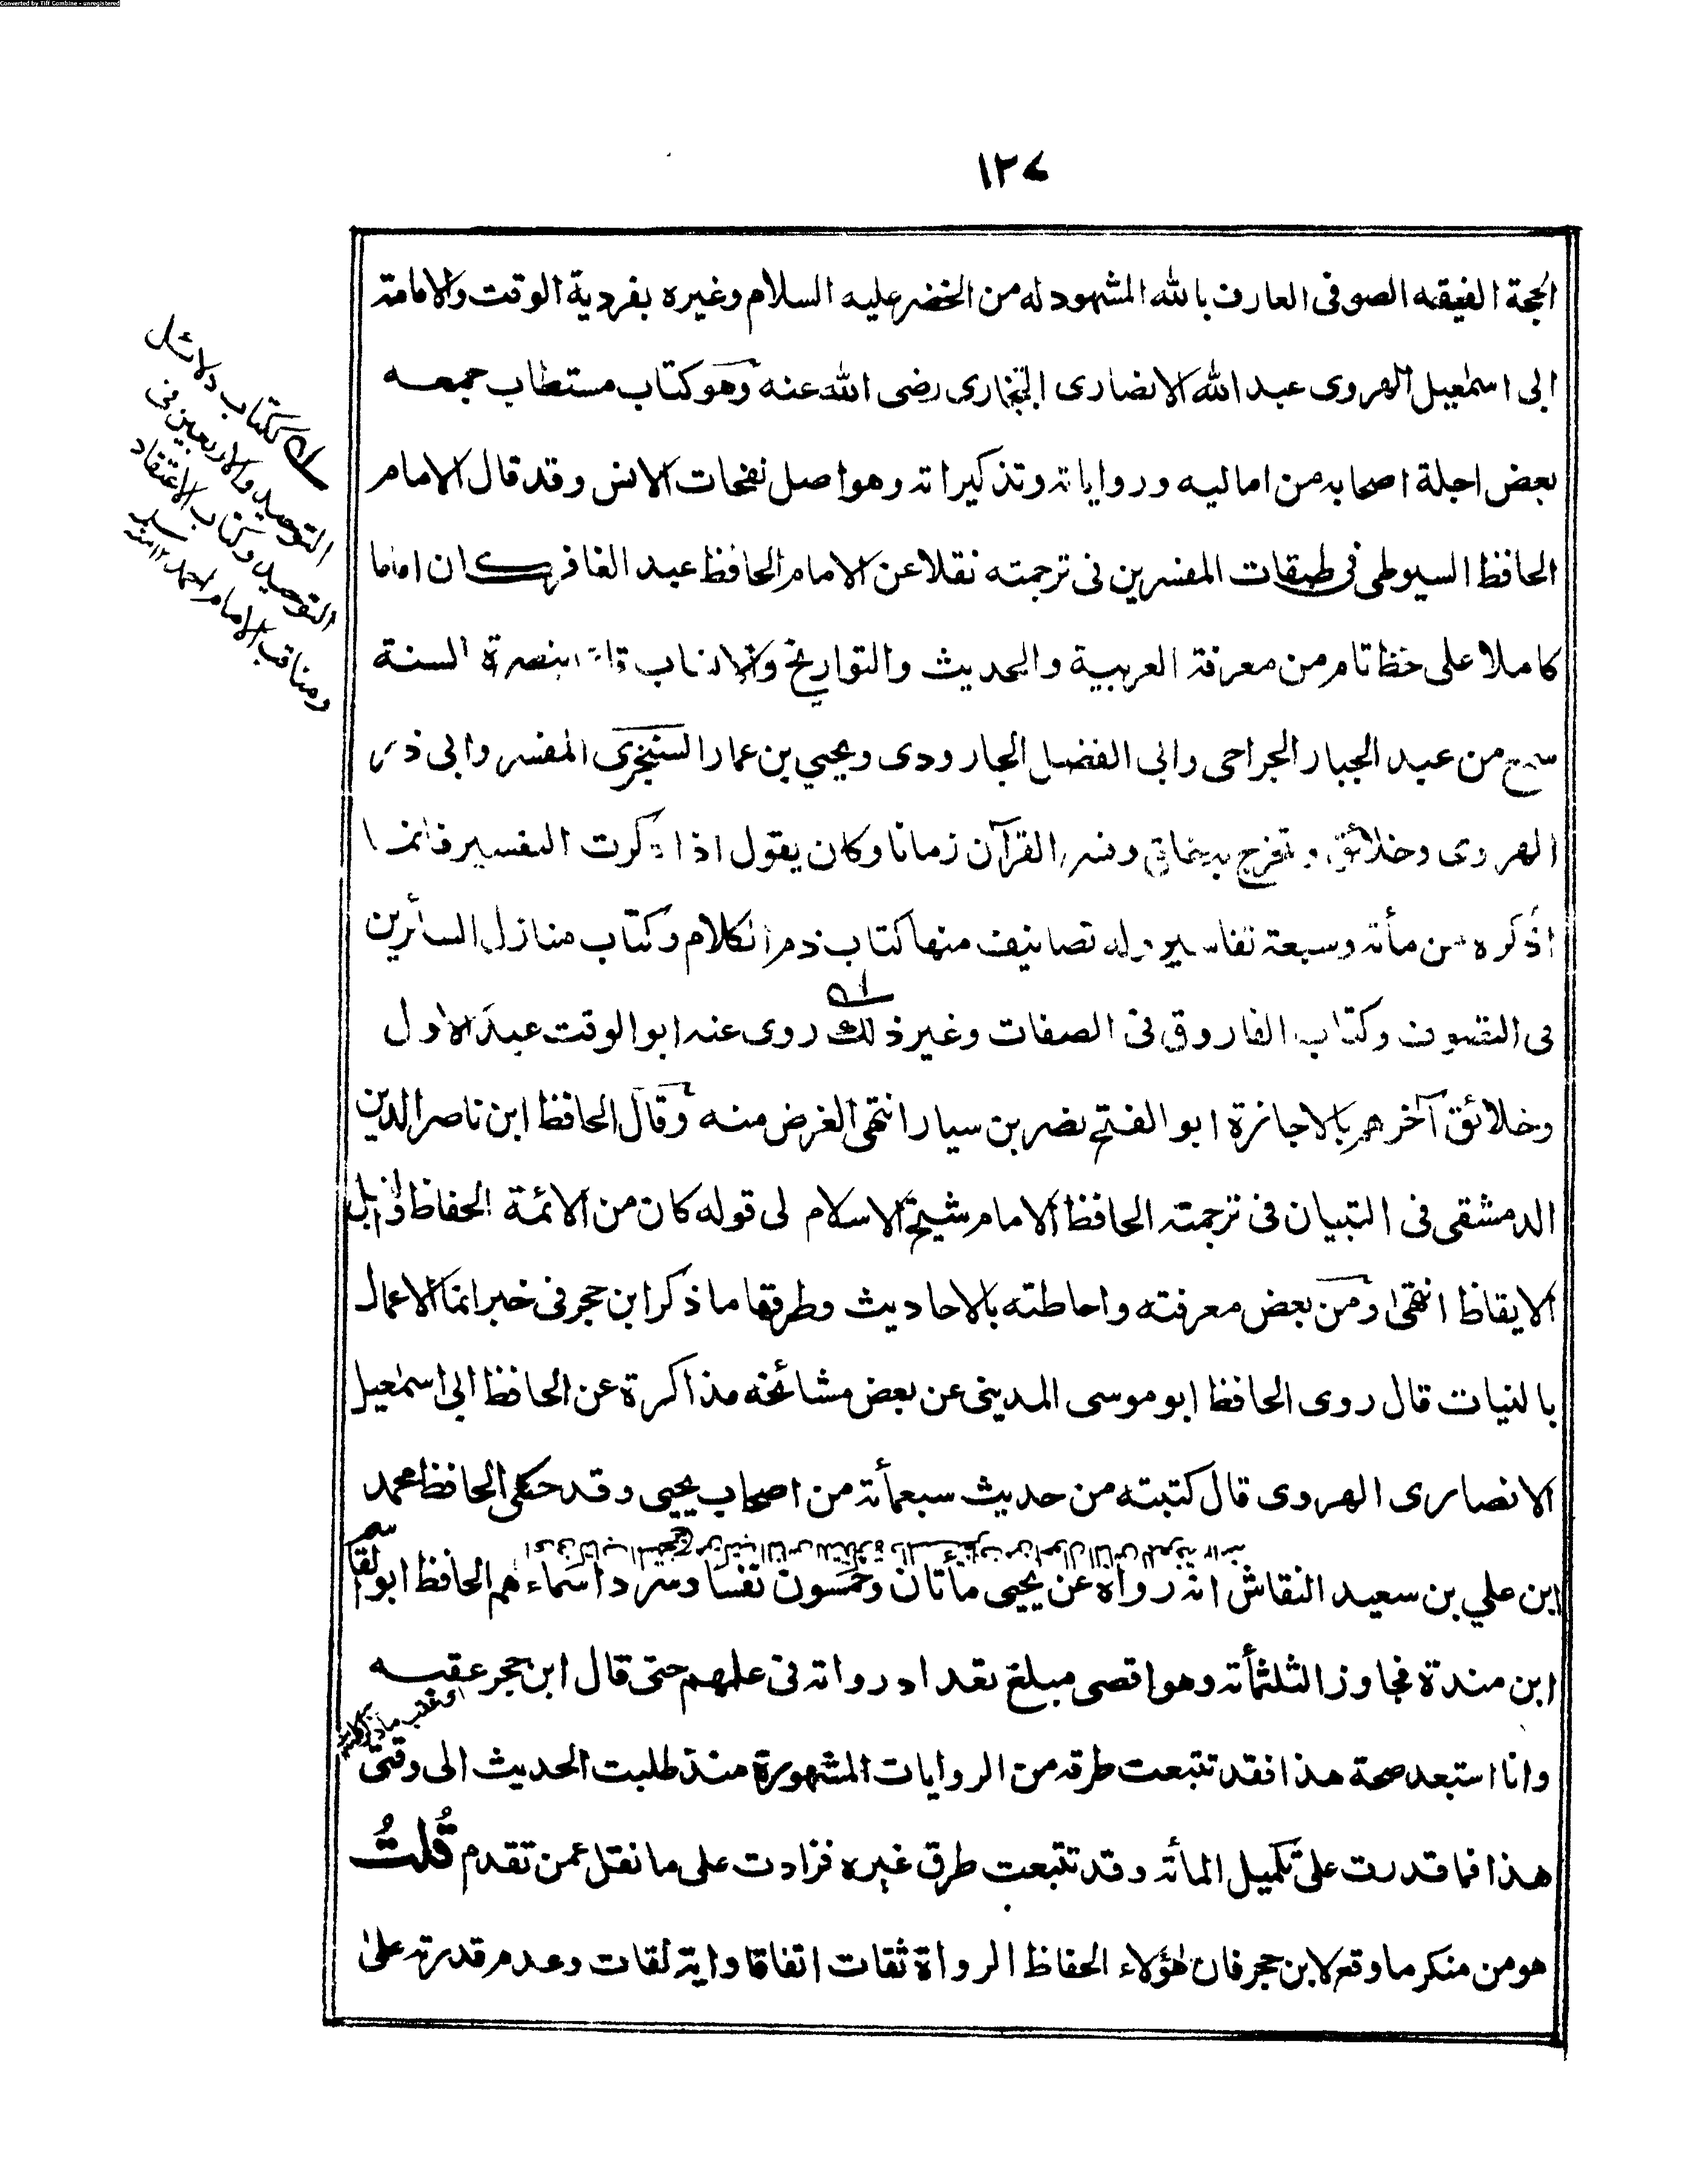 Converted by Tiff Combine - unregistered
١٢٧
الحجة الفقيه الصوفى العارف بالله المشهود له من الخضر عليه السلام وغيره بفردية الوقت والامامة
ابى اسمٰعيل الهروى عبد الله الانصارى البخارى رضى الله عنه وهو كتاب مستطاب جمعه
بعض اجلة اصحابه من اماليه ورواياته وتذكيراته وهو اصل نفحات الانس وقد قال الامام
الحافظ السيوطى فى طبقات المفسرين فى ترجمته نقلا عن الامام الحافظ عبد الغافر كان اماما
كاملا على حظ تام من معرفة العربية والحديث والتواريخ والانساب بنصرة السنة
سمع من عبد الجبار الجراحى وابى الفضل الجارودى ويحيي بن عمار السنجزى المفسر وابى ذر
الهروى وخلائق وتخرج به وفسر القرآن زمانا وكان يقول اذا ذكرت التفسير فانما
اذكره من مأته وسبعة تفاسير وله تصانيف منها كتاب ذم الكلام وكتاب منازل السائرين
فى التصوف وكتاب الفاروق فى الصفات وغير ذلك روى عنه ابو الوقت عبد الاول
وخلائق آخرهم بالاجازة ابو الفتح نصر بن سيار انتهى الغرض منه وقال الحافظ ابن ناصر الدين
الدمشقى فى التبيان فى ترجمته الحافظ الامام شيخ الاسلام لى قوله كان من الائمة الحفاظ
الايقاظ انتهى ومن بعض معرفته واحاطته بالاحاديث وطرقها ما ذكر ابن حجر فى خبر انما الاعمال
بالنيات قال روى الحافظ ابو موسى المدينى عن بعض مشائخه مذاكرة عن الحافظ ابى اسمٰعيل
الانصارى الهروى قال كتبته من حديث سبعمأته من اصحاب يحيى وقد حكى الحافظ محمد
ابن علي بن سعيد النقاش انه رواه عن يحيى مأتان وخمسون نفسا وسرد اسماءهم الحافظ ابو القاسم
ابن مندة فجاوز الثلثمأته وهو اقصى مبلغ تعداد رواته فى علمهم حتى قال ابن حجر عقبه
وانا استبعد صحة هذا فقد تتبعت طرقه من الروايات المشهورة منذ طلبت الحديث الى وقتى
هذا فما قدرت على تكميل المأته وقد تتبعت طرق غيره فزادت على ما نقل عمن تقدم قُلتُ
هو من منكر ما وقع لابن حجر فان هٰؤلاء الحفاظ الرواة ثقات اتفاقا وعدم قدرته علىٰ
ككتاب دلائل
التوحيد والاربعين فى
التوحيد وكتاب الاعتقاد
ومناقب الامام احمد ١٢ منه